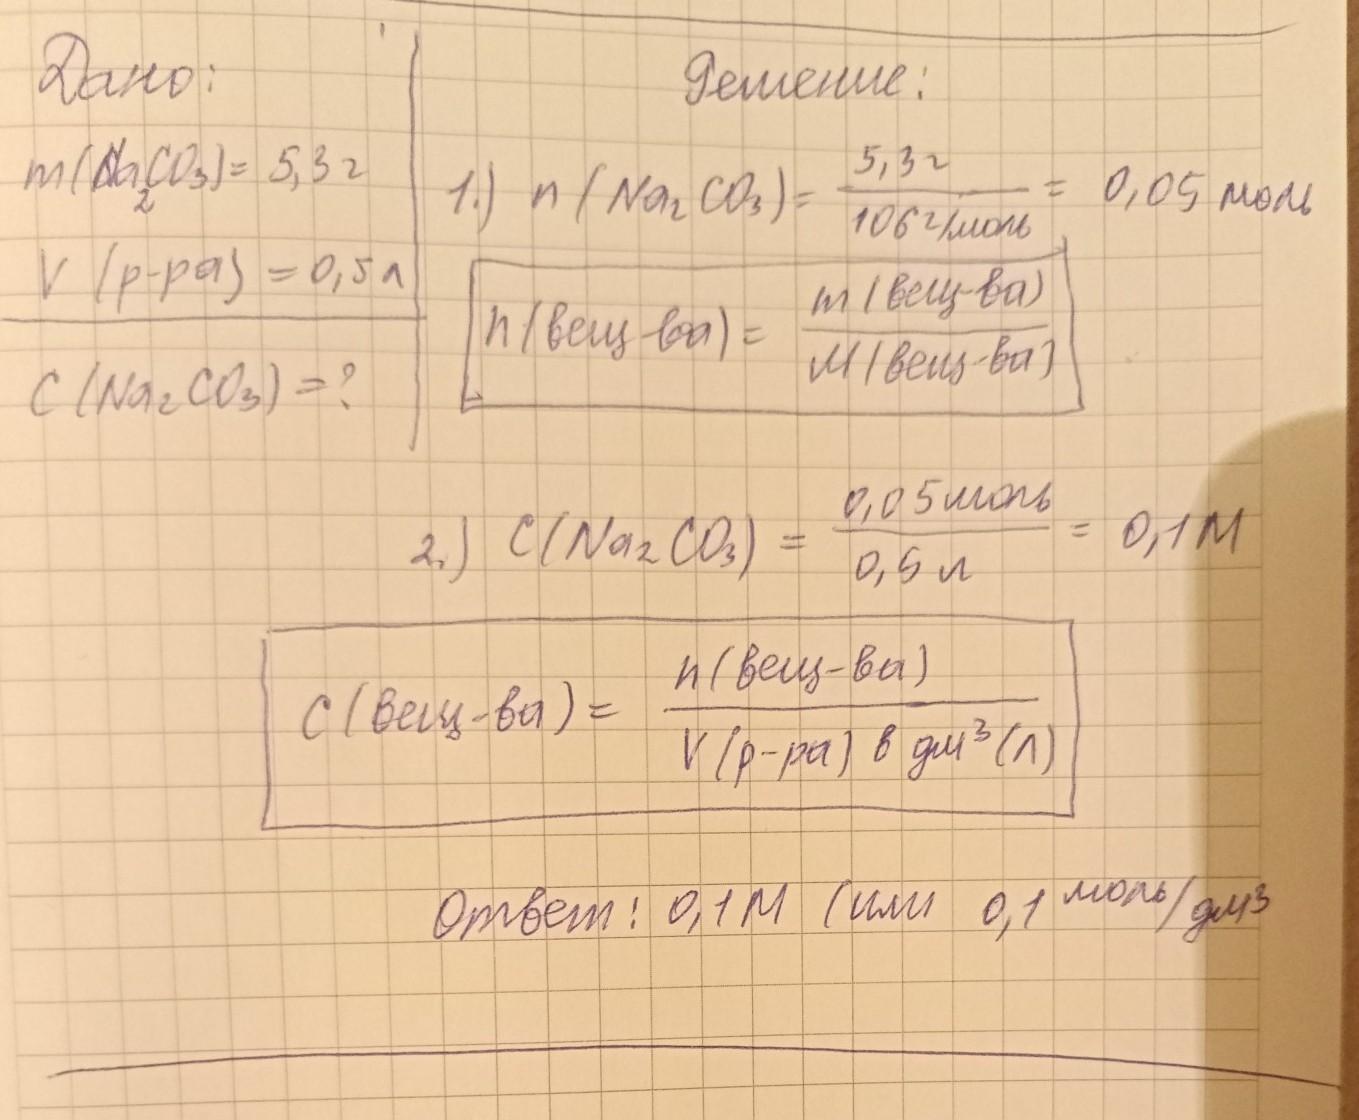 Дано:
m(Na₂CO₃) = 5,3 г
V (р-ра) = 0,5 л
C (Na₂CO₃) = ?
Решение:
1.) n (Na₂CO₃) = 5,3 г / 106 г/моль = 0,05 моль
n(вещ-ва) = m(вещ-ва) / M(вещ-ва)
2.) C(Na₂CO₃) = 0,05 моль / 0,5 л = 0,1 М
C(вещ-ва) = n(вещ-ва) / V(р-ра) в дм³(л)
Ответ: 0,1 М (или 0,1 моль/дм³